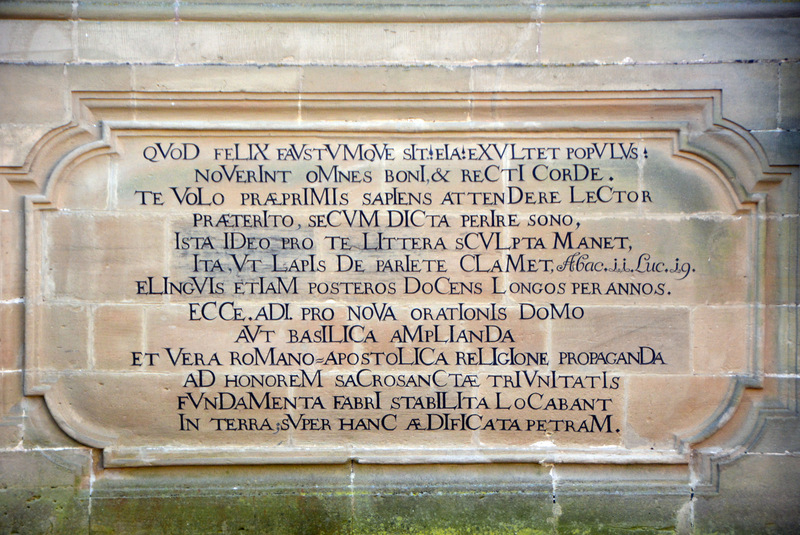 QVoD feLIX fAVstVMQVe sIt! eIA! eXVLtet popVLVs!
noVerInt oMnes bonI, & reCtI CorDe.
te VoLo præprIMIs sapIens attenDere LeCtor
præterIto, seCVM DICta perIre sono,
Ista IDeo pro te LIttera sCVLpta Manet,
Ita, Vt LapIs De parIete CLaMet, Abac. ii. Luc. 19.
eLIngVIs etIaM posteros DoCens Longos per annos.
eCCe. aDI. pro noVa oratIonIs DoMo
aVt basILICa aMpLIanDa
et Vera roMano=apostoLICa reLIgIone propaganDa
aD honoreM saCrosanCtæ trIVnItatIs
fVnDaMenta fabrI stabILIta LoCabant
In terra; sVper hanC æDIfICata petraM.